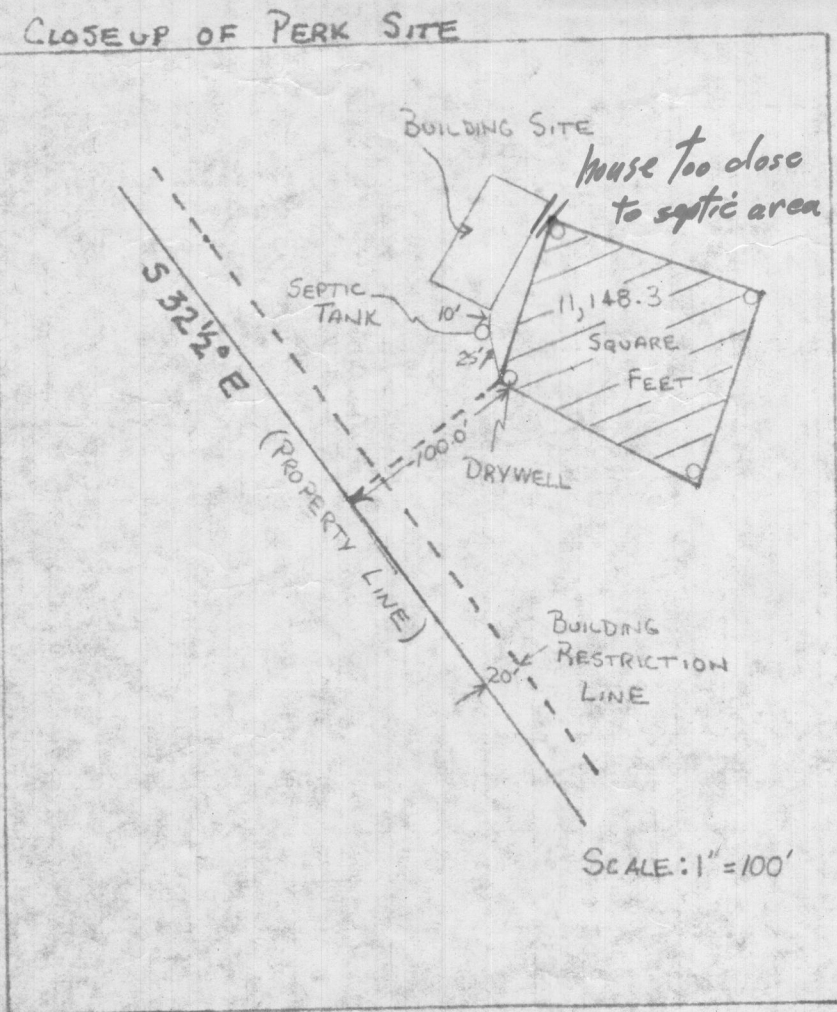 CLOSEUP OF PERK SITE
BUILDING SITE
house too close
to septic area
S 32½° E
SEPTIC
TANK
10'
25'
11,148.3
SQUARE
FEET
100.0'
DRYWELL
(PROPERTY LINE)
BUILDING
RESTRICTION
LINE
20'
SCALE: 1" = 100'